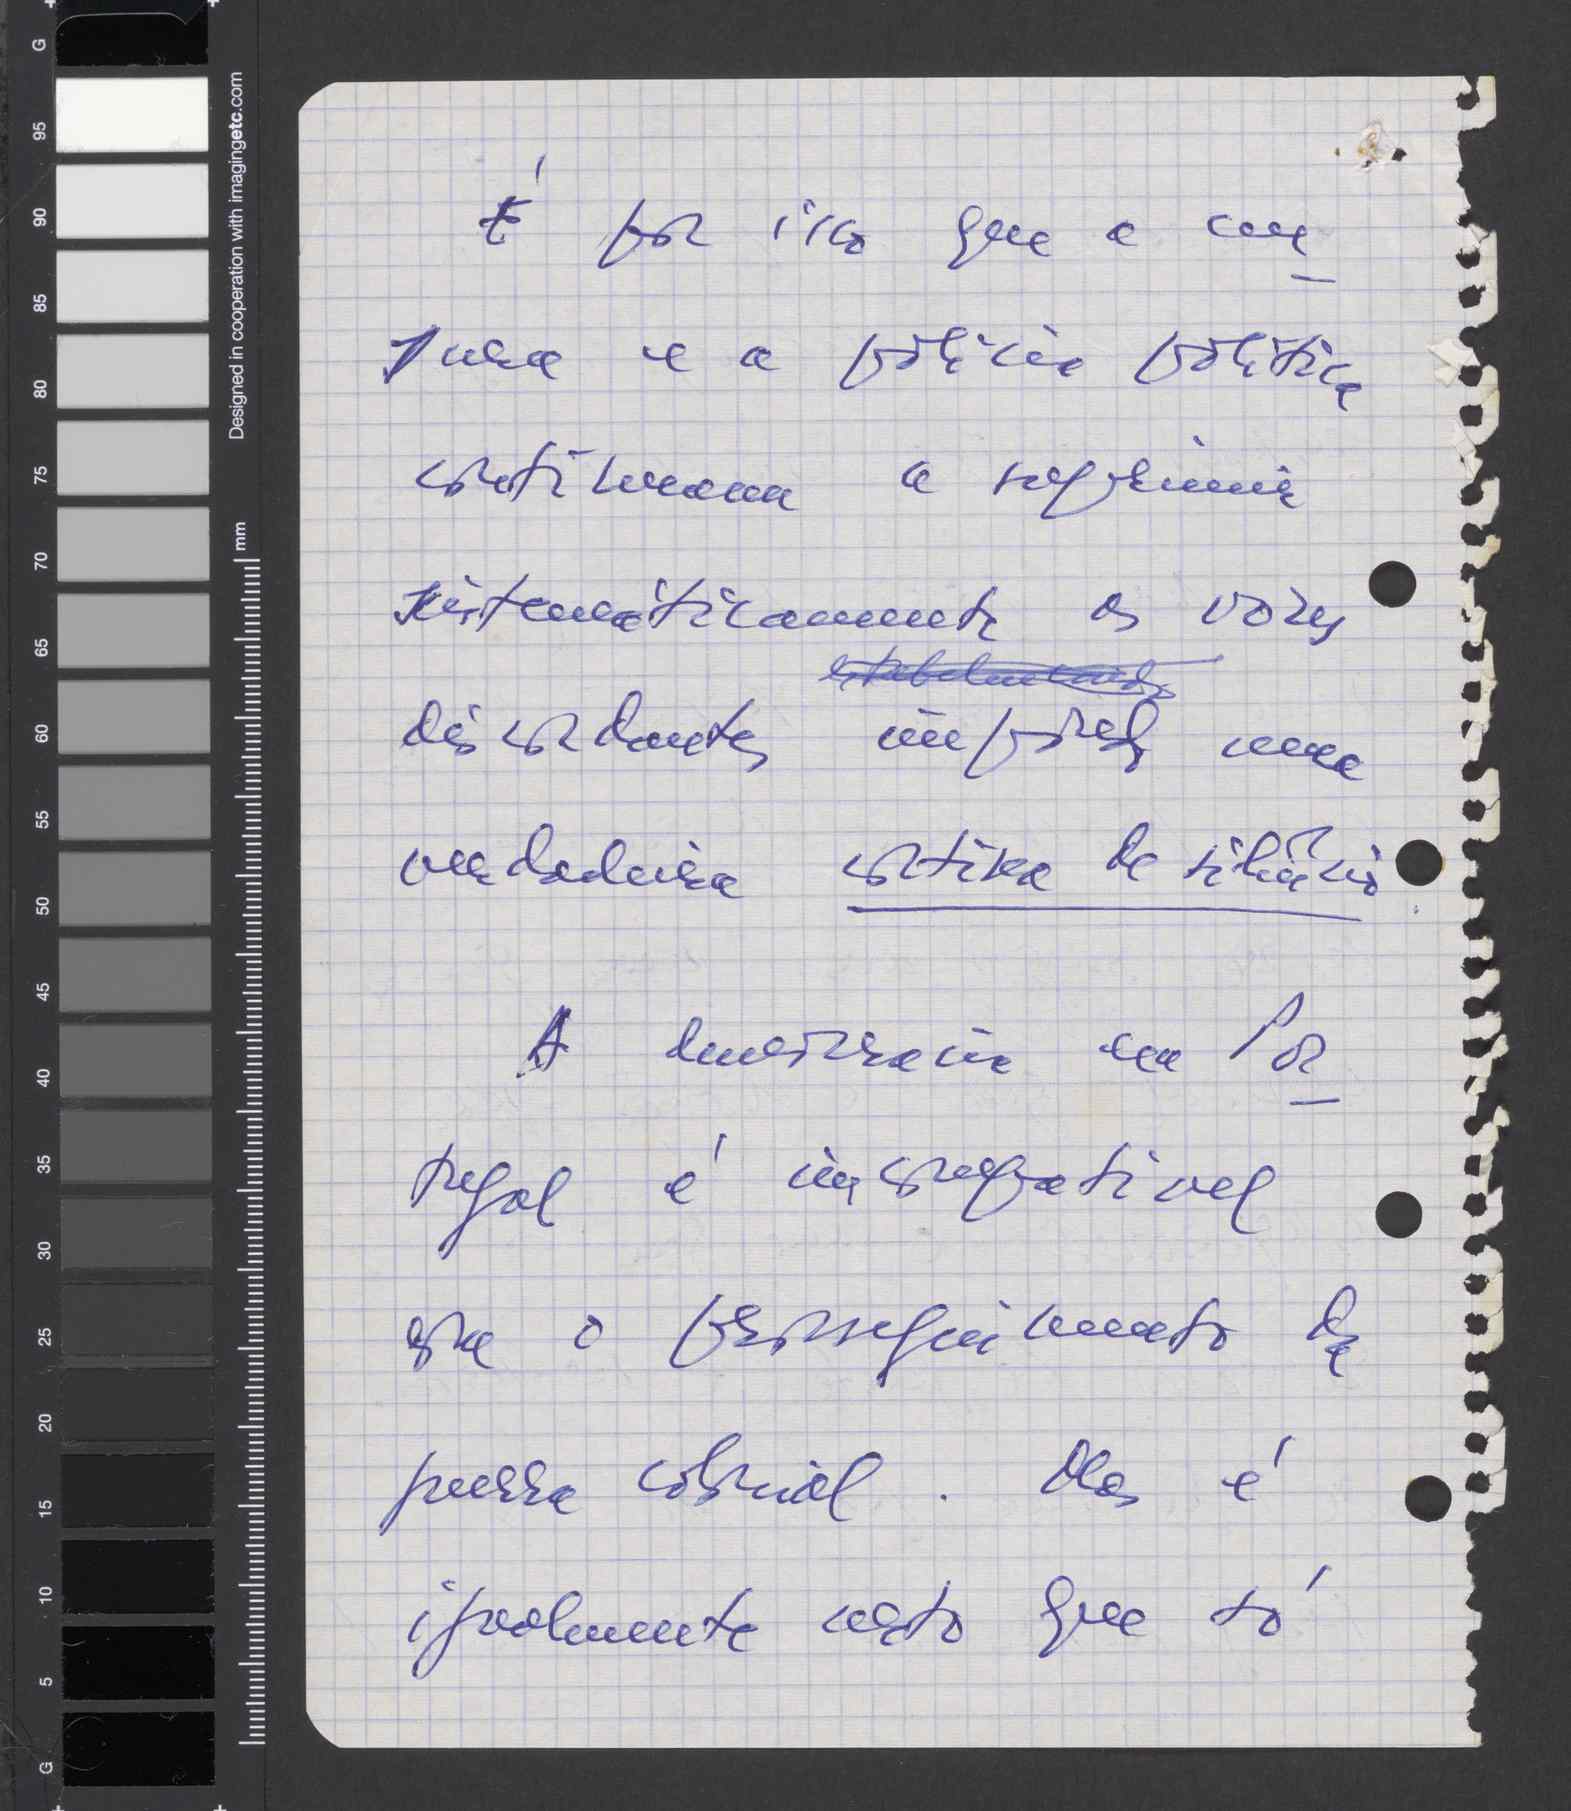 É por isso que a cen-
sura e a polícia política
continuam a reprimir
sistemáticamente as vozes
discordantes impondo uma
verdadeira cortina de silêncio.
A democracia em Por-
tugal é incompatível
com o prosseguimento da
guerra colonial. Mas é
igualmente certo que só
Designed in cooperation with imagingetc.com
mm
G
95
90
85
80
75
70
65
60
55
50
45
40
35
30
25
20
15
10
5
G